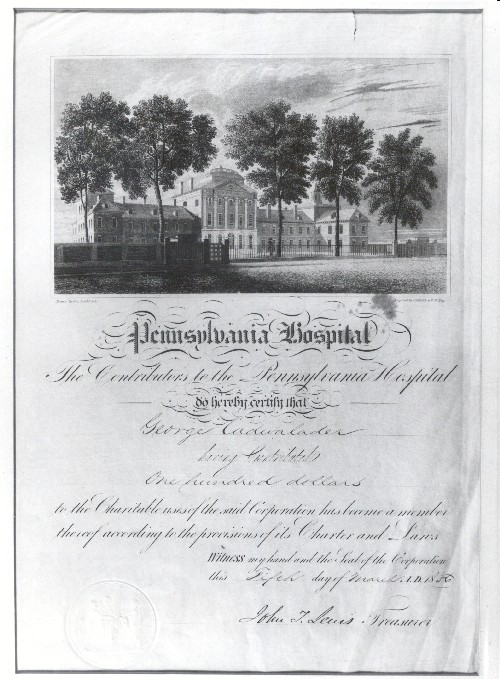 Pennsylvania Hospital
The Contributors to the Pennsylvania Hospital
do hereby certify that
George Cadwalader
having Contributed
One hundred dollars
to the Charitable uses of the said Corporation has become a member
thereof according to the provisions of its Charter and Laws
Witness my hand and the Seal of the Corporation
this Fifth day of March A.D. 18
John T. Lewis Treasurer